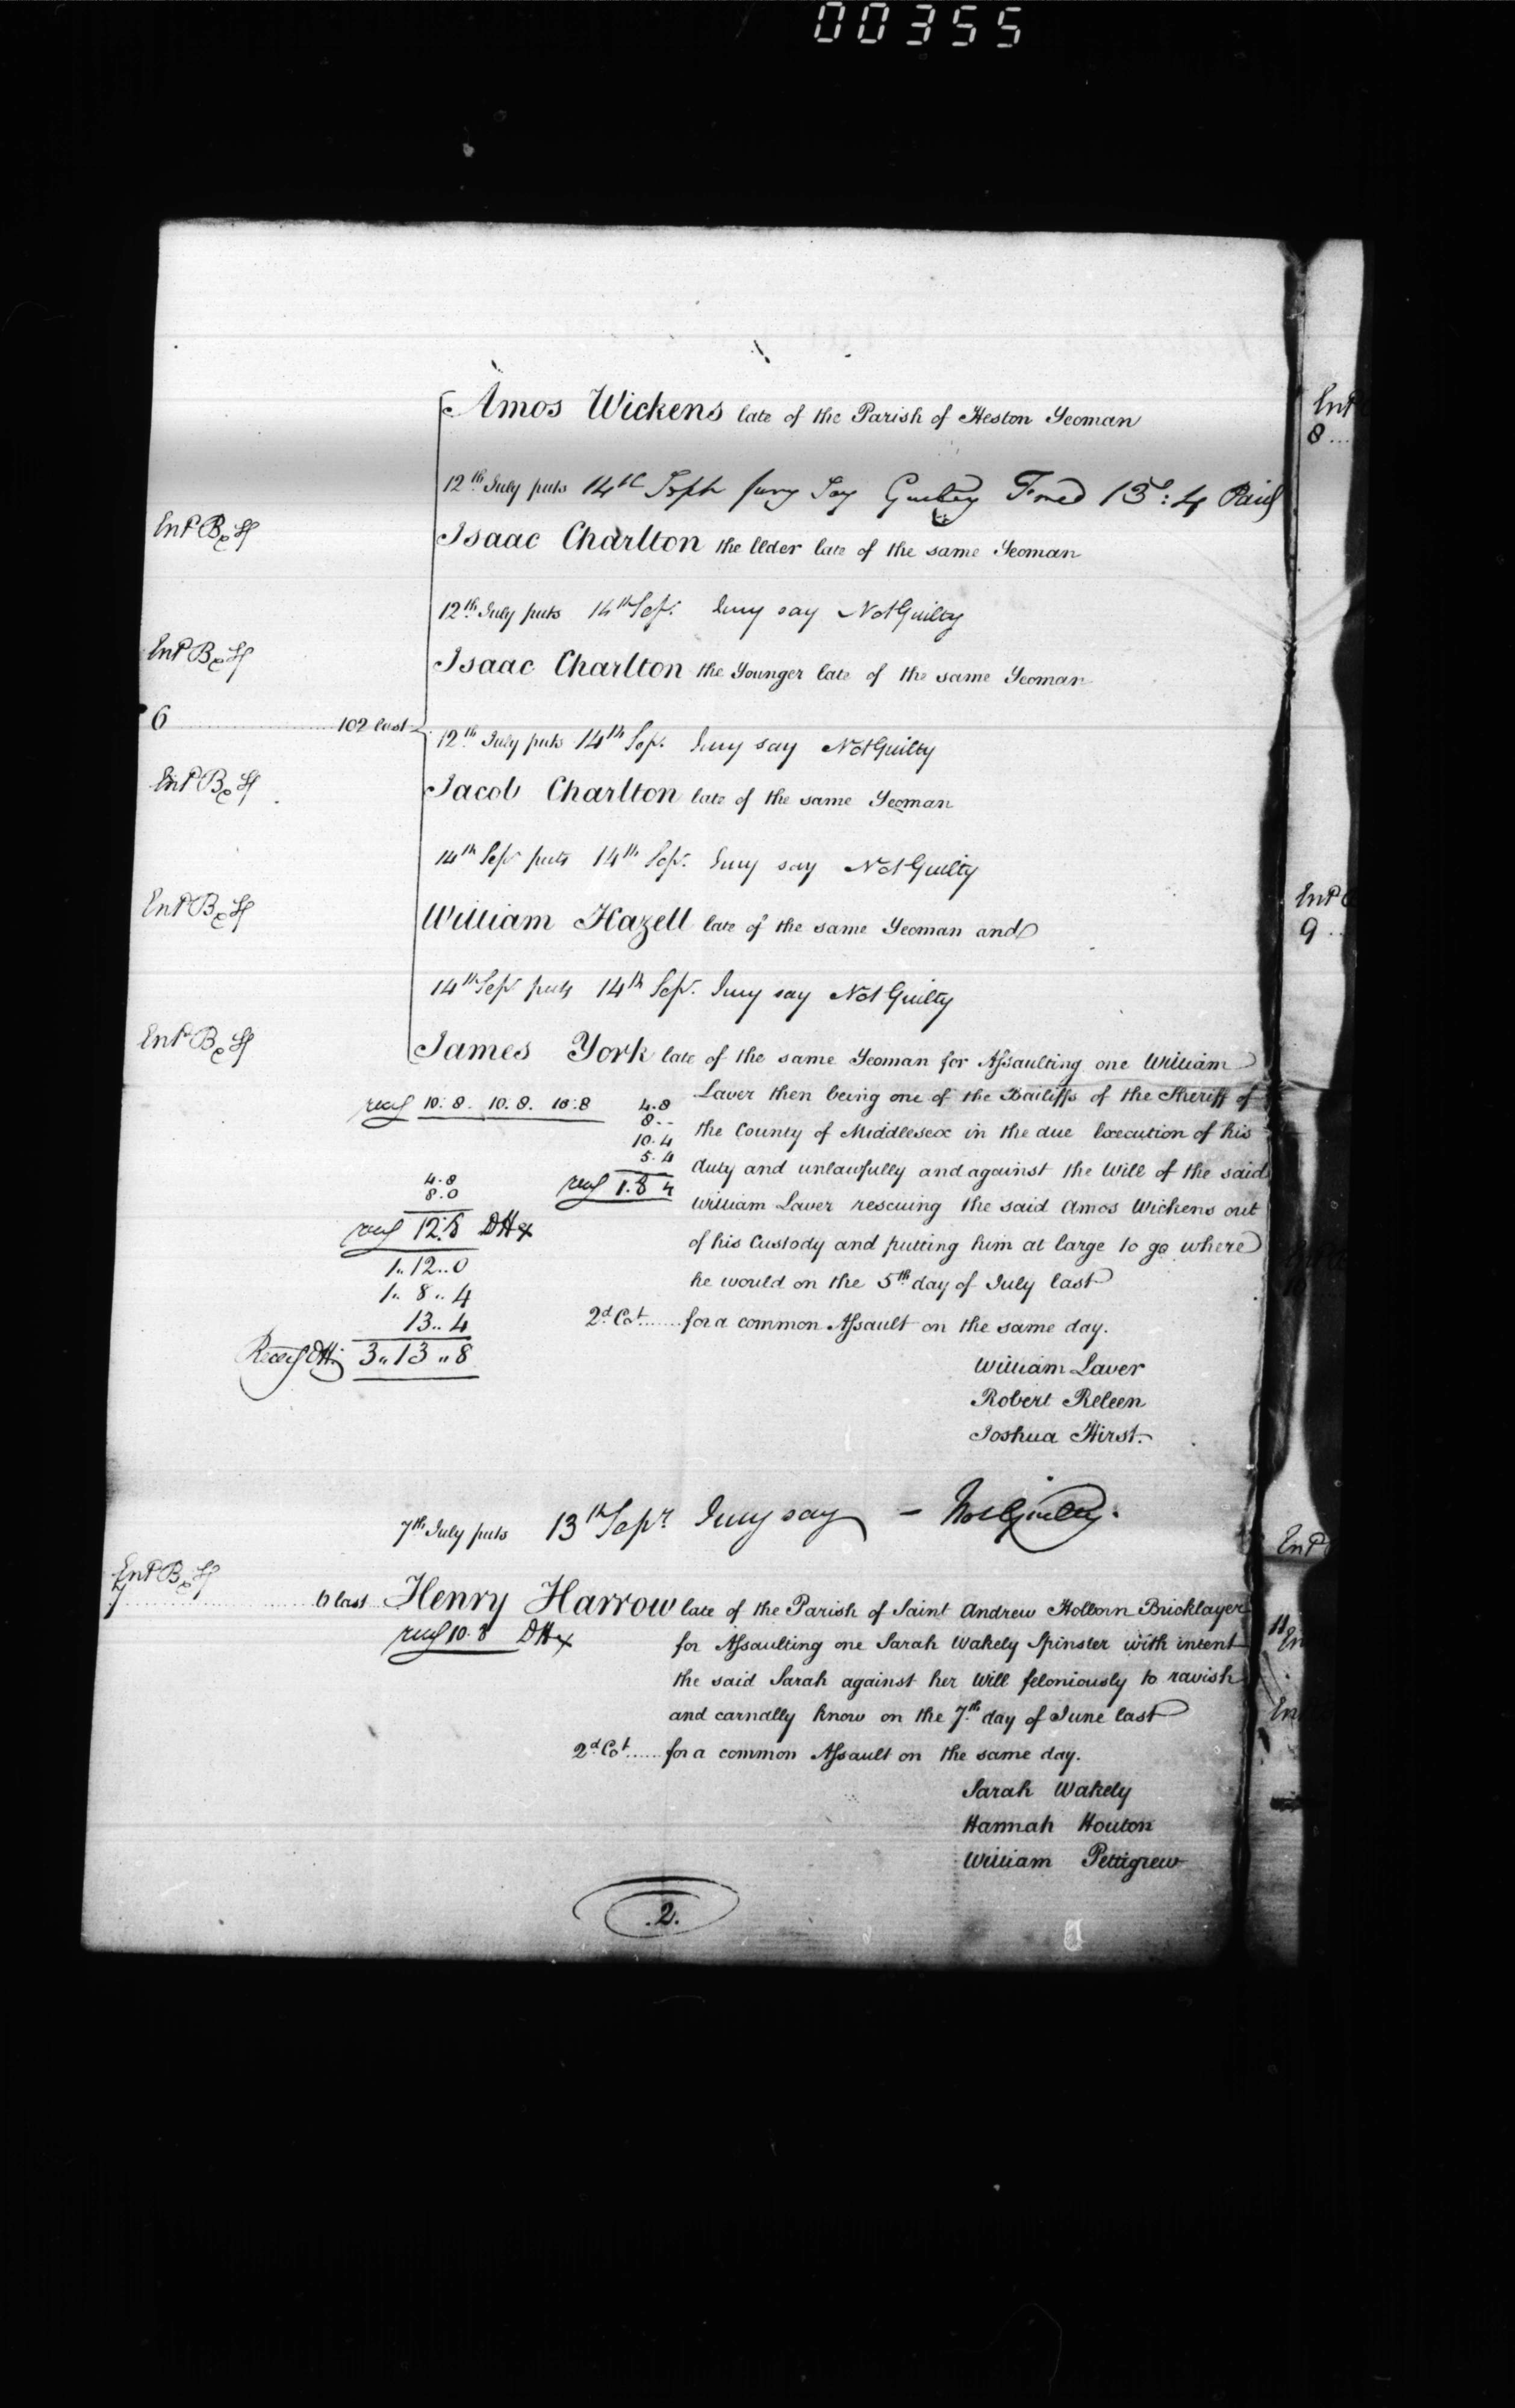 00355
Amos Wickens late of the Parish of Heston Yeoman
12th July puts 14th Sept Jury Say Guilty Fined 13s: 4 Paid
Isaac Charlton the Elder late of the same Yeoman
12th July puts 14th Sepr. Jury say Not Guilty
Isaac Charlton the Younger late of the same Yeoman
6 102 last
12th July puts 14th Sepr. Jury say Not Guilty
Jacob Charlton late of the same Yeoman
14th Sepr puts 14th Sepr. Jury say Not Guilty
William Hazell late of the same Yeoman and
14th Sepr puts 14th Sepr. Jury say Not Guilty
James York late of the same Yeoman for Assaulting one William
Laver then being one of the Bailiffs of the Sheriff of
the County of Middlesex in the due Execution of his
duty and unlawfully and against the Will of the said
William Laver rescuing the said Amos Wickens out
of his Custody and putting him at large to go where
he would on the 5th day of July last
2d. Cot. for a common Assault on the same day.
William Laver
Robert Releen
Joshua Hirst.
10:8. 10.8. 10:8
4.8
8--
10.4
5.4
1.8 4
4.8
8.0
12.8 DHx
1..12..0
1..8..4
13..4
3..13..8
7th July puts 13th Sepr Jury say – Not Guilty.
7 6 last Henry Harrow late of the Parish of Saint Andrew Holborn Bricklayer
10.8 DHx
for Assaulting one Sarah Wakely Spinster with intent
the said Sarah against her Will feloniously to ravish
and carnally know on the 7th day of June last
2d. Cot. for a common Assault on the same day.
Sarah Wakely
Hannah Houton
William Pettigrew
.2.
8
9
11